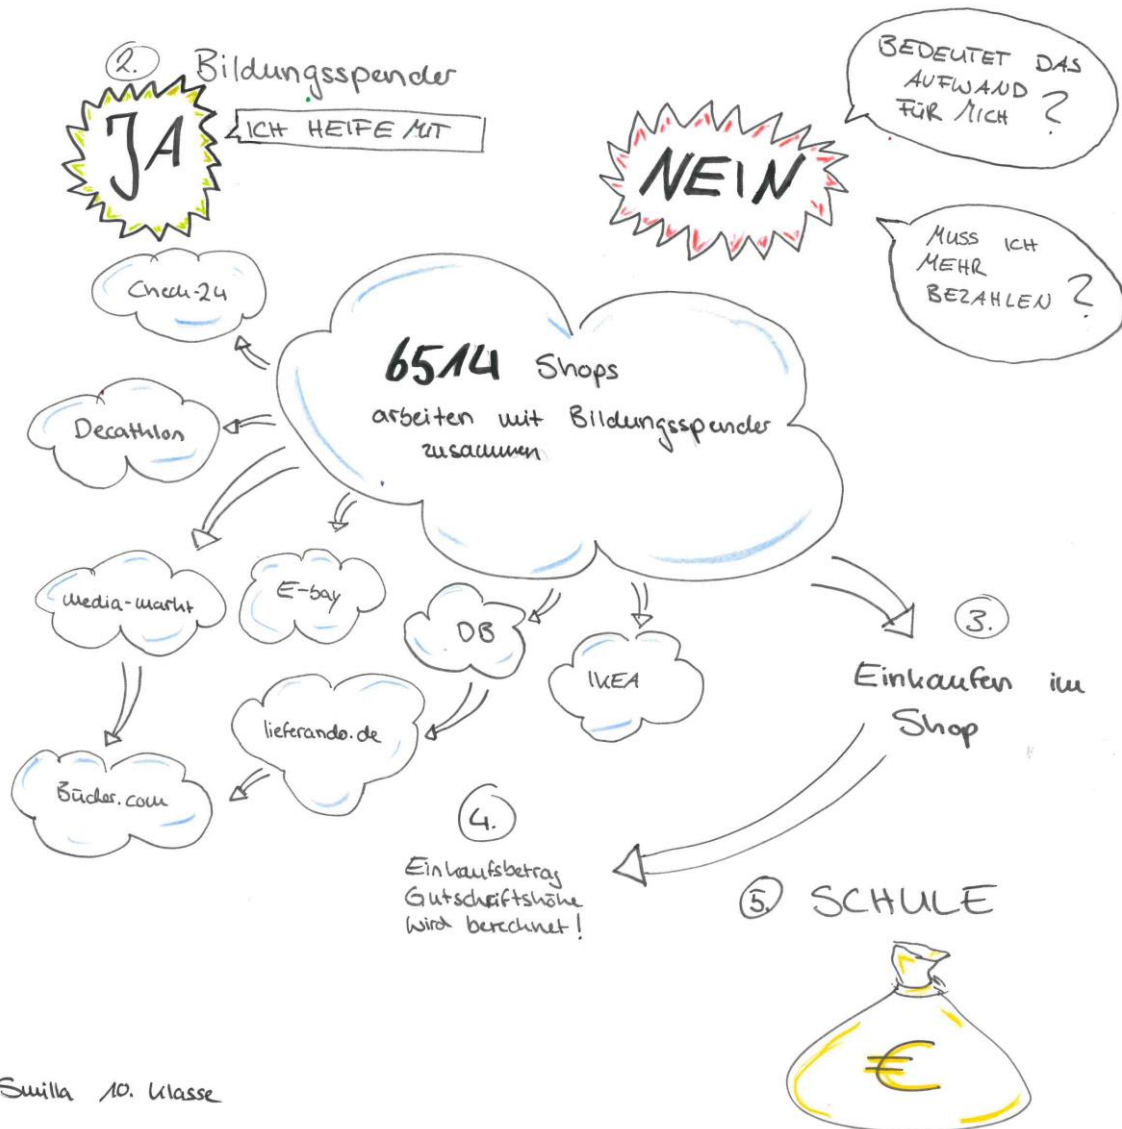 2. Bildungsspender
JA
ICH HELFE MIT
NEIN
BEDEUTET DAS
AUFWAND
FÜR MICH ?
MUSS ICH
MEHR
BEZAHLEN ?
Check-24
6514 Shops
arbeiten mit Bildungsspender
zusammen
Decathlon
Media-Markt
E-bay
DB
IKEA
lieferando.de
Bücher.com
3.
Einkaufen im
Shop
4.
Einkaufsbetrag
Gutschriftshöhe
wird berechnet!
5. SCHULE
€
Smilla 10. Klasse